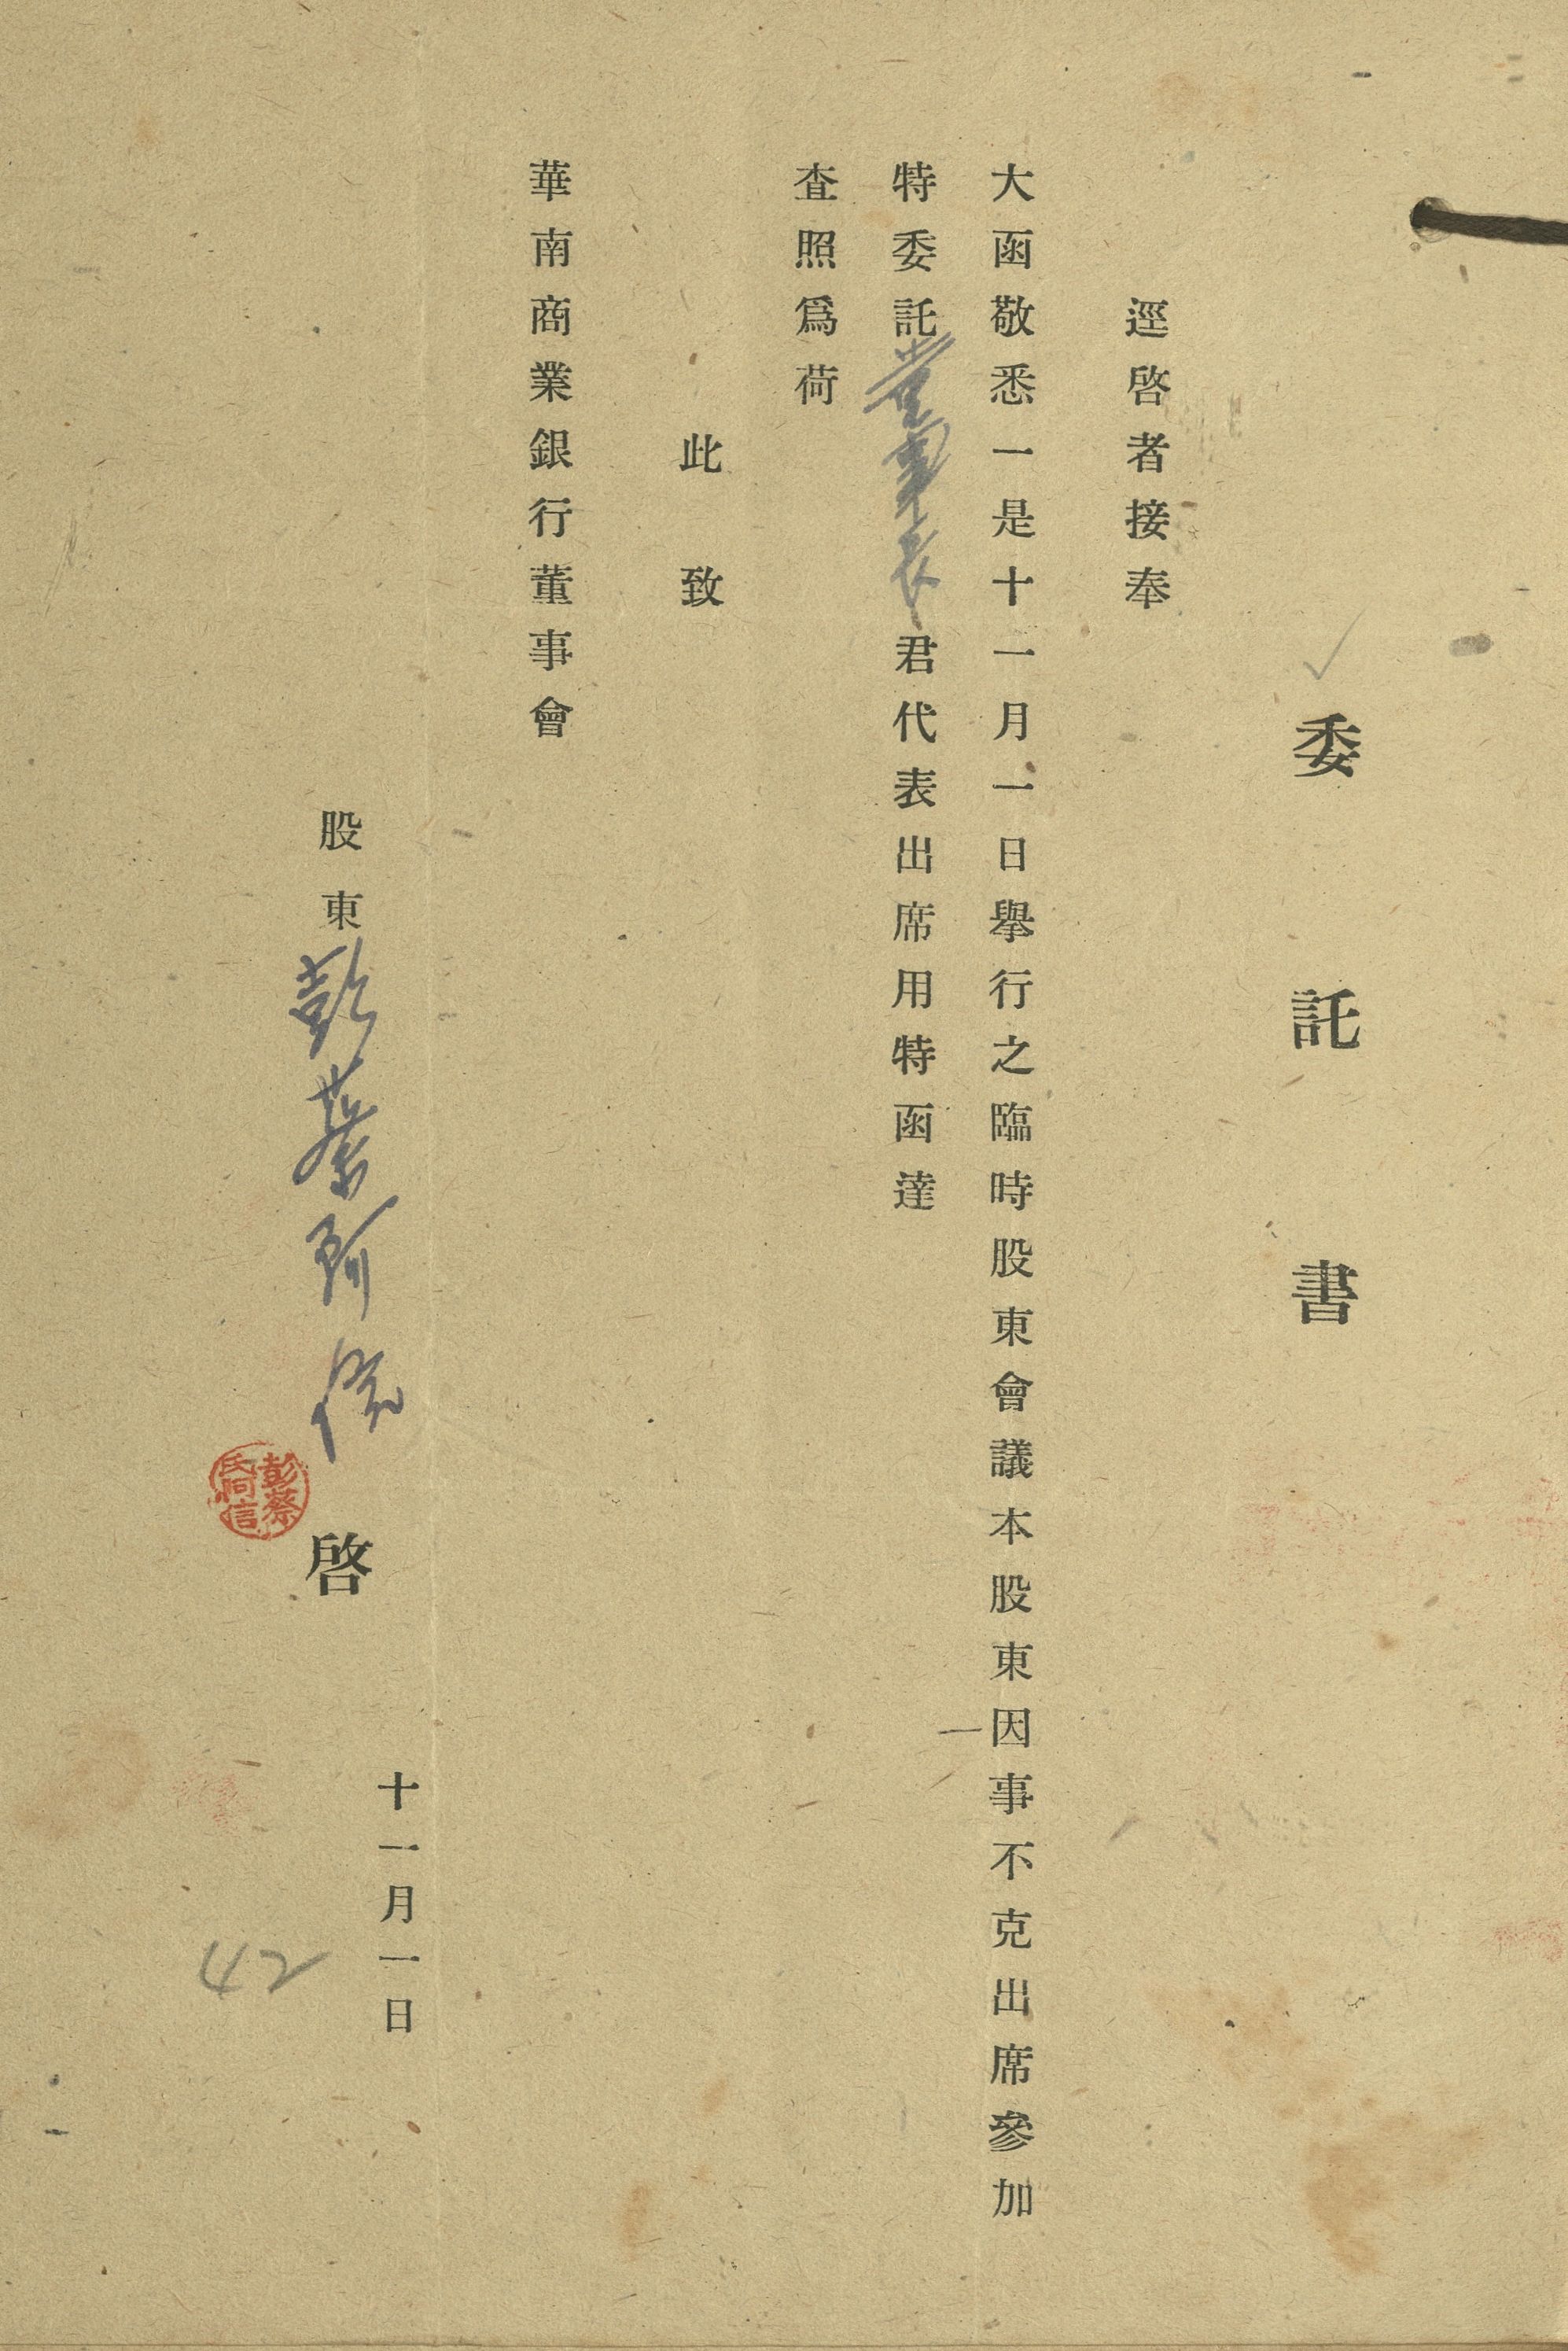 委託書
逕啓者接奉
大函敬悉一是十一月一日舉行之臨時股東會議本股東因事不克出席參加
特委託董事長君代表出席用特函達
査照爲荷
此致
華南商業銀行董事會
股東彭蔡阿信啓
彭蔡
氏阿信
十一月一日
42